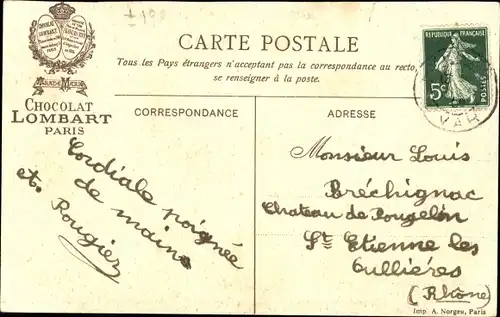 CARTE POSTALE
Tous les Pays étrangers n'acceptant pas la correspondance au recto,
se renseigner à la poste.
MARQUE
CHOCOLAT
LOMBART
PARIS
CORRESPONDANCE
Cordiale poignée
de mains
et.
Rougier
ADRESSE
REPUBLIQUE FRANÇAISE
5c
POSTES
VAR
Monsieur Louis
Bréchignac
Chateau de Pougelon
St Etienne les
Oullières
(Rhône)
Imp. A. Norgeu, Paris